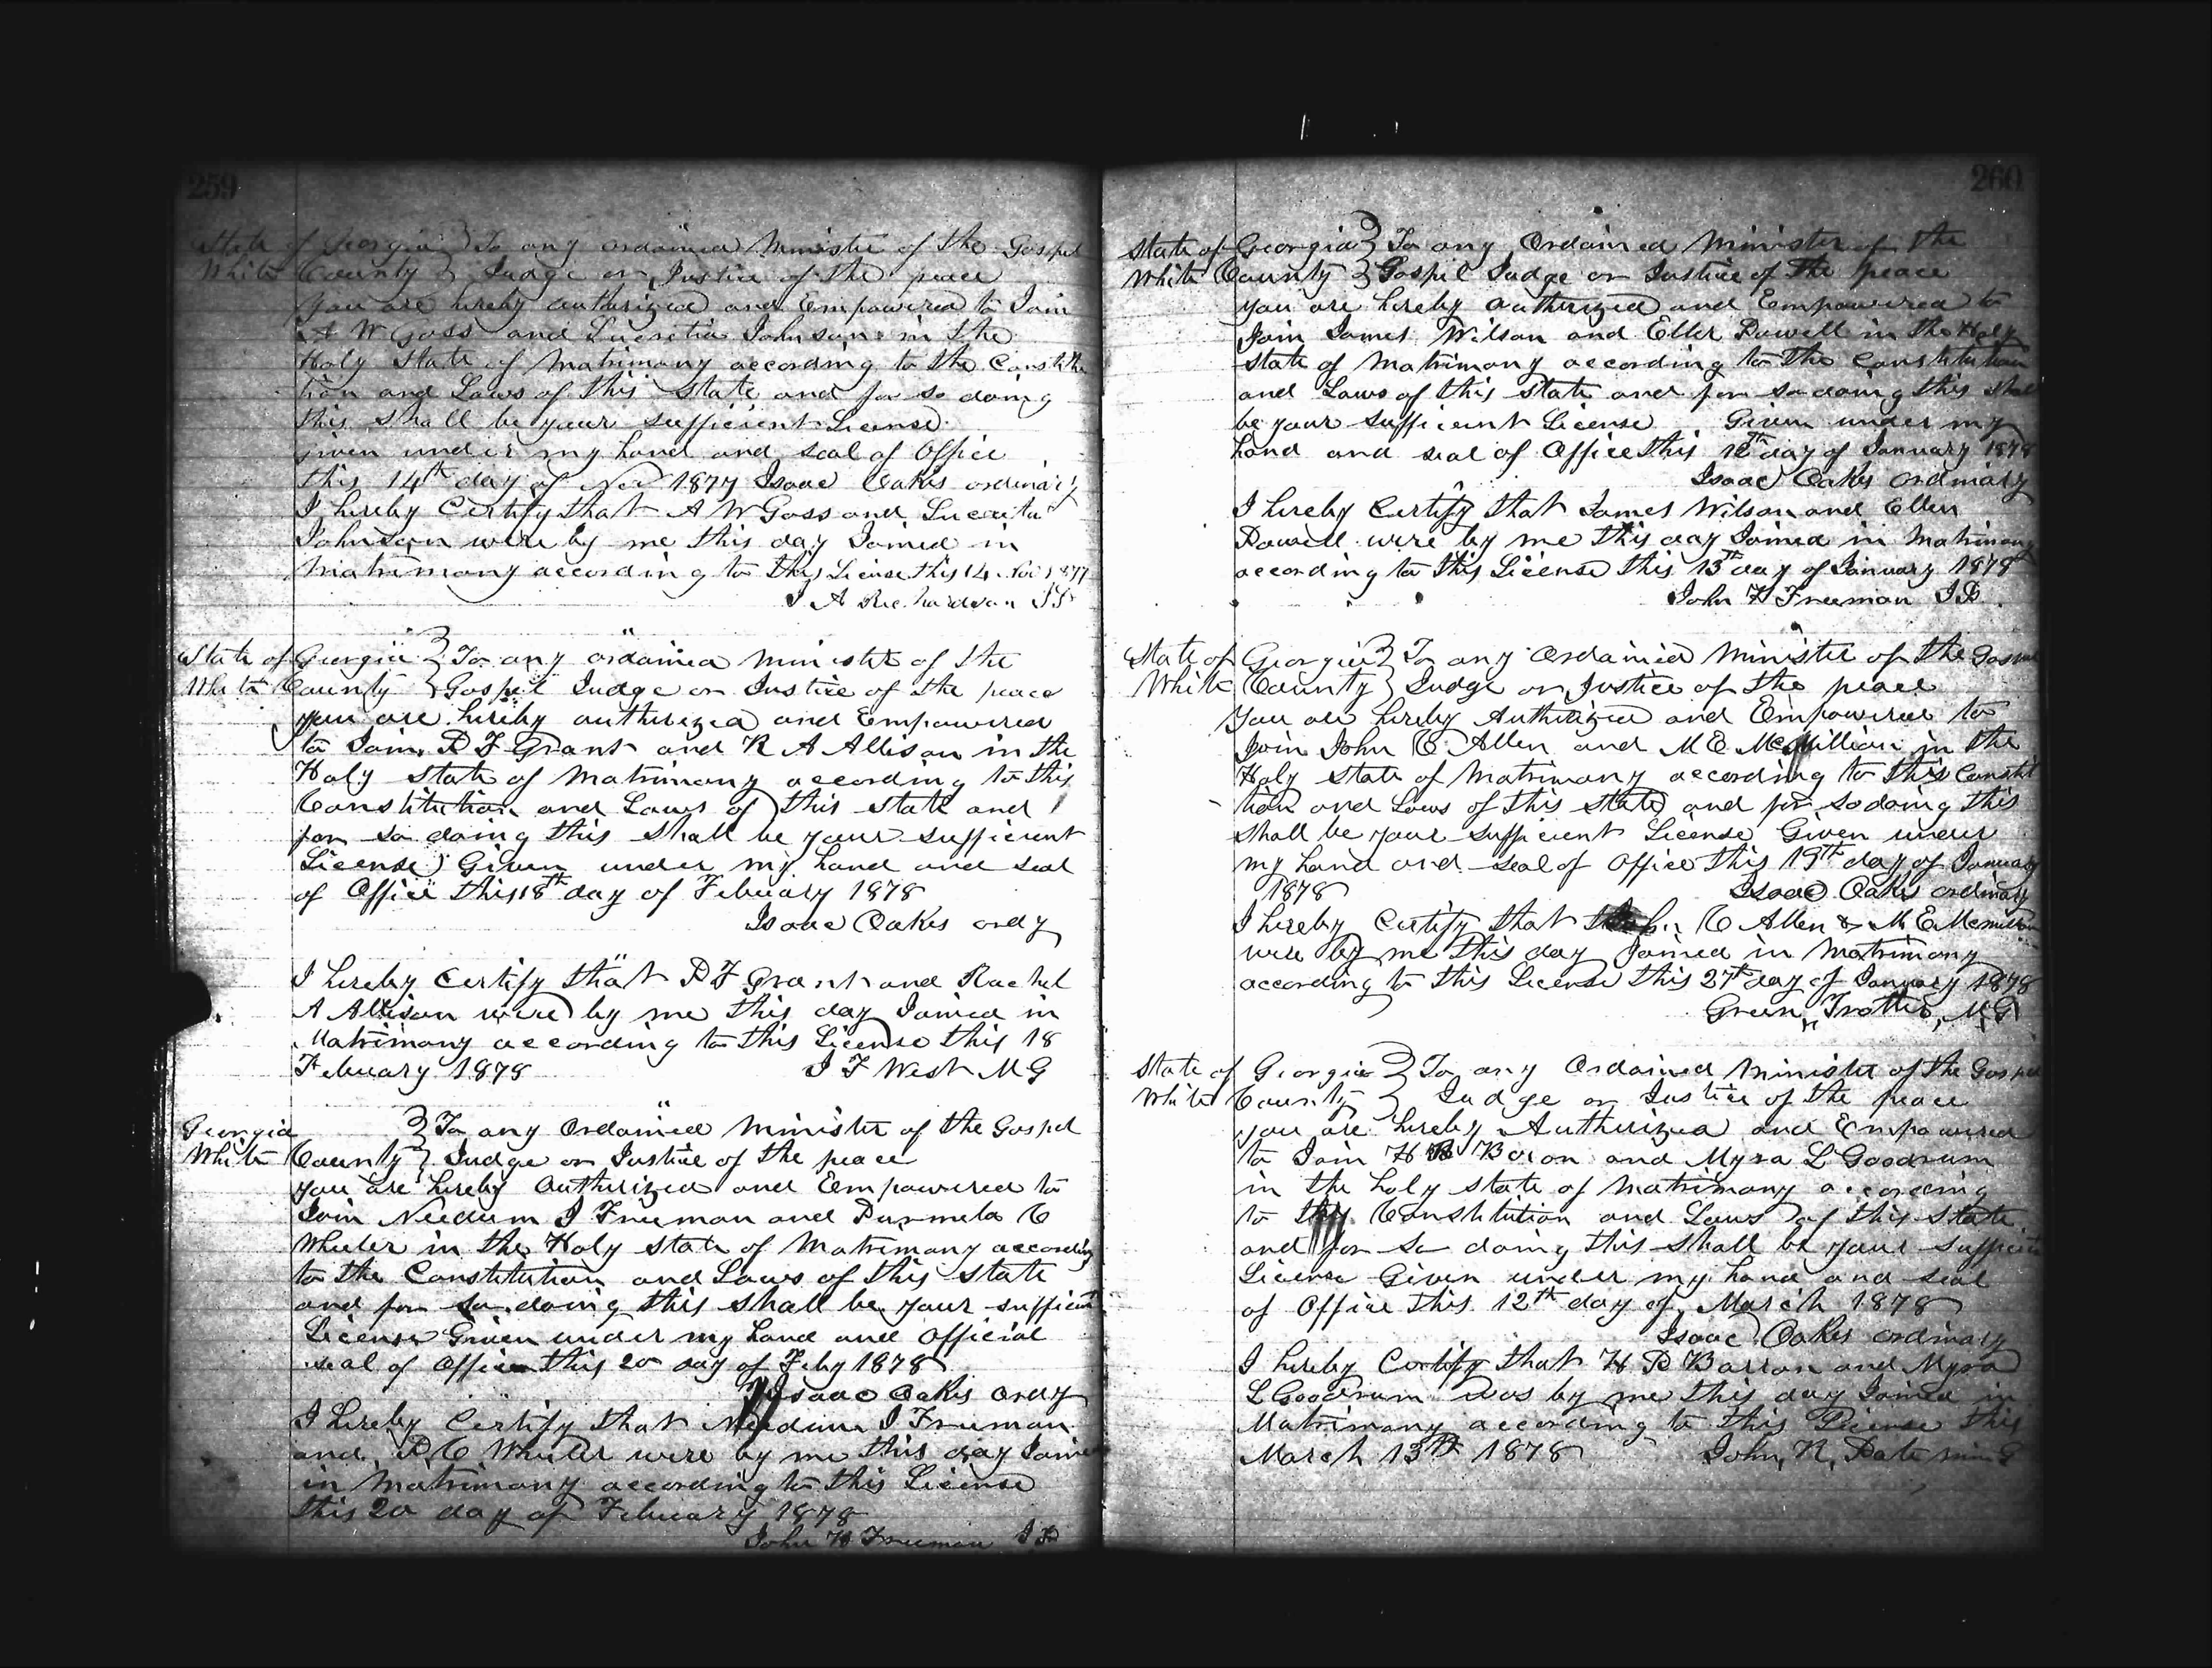 259
State of Georgia } To any ordained Minister of the Gospel
White County } Judge or Justice of the peace
You are hereby authorized and Empowered to Join
A W Goss and Lucretia Johnson in the
Holy State of Matrimony according to the Constitu
tion and Laws of this State and for so doing
this shall be your sufficient License
given under my hand and seal of Office
this 14th day of Nov 1877 Isaac Oakes ordinary
I hereby Certify that A W Goss and
Johnson were by me this day Joined in
Matrimony according to this License this 14 Nov 1877
J A Richardson JP
State of Georgia } To any ordained minister of the
White County } Gospel Judge or Justice of the peace
you are hereby authorized and Empowered
to Join P F Grant and R A Allison in the
Holy State of Matrimony according to this
Constitution and Laws of this State and
for so doing this shall be your sufficient
License Given under my hand and seal
of Office this 18th day of Febuary 1878
Isaac Oakes ordy
I hereby Certify that P F Grant and Rachel
A Allison were by me this day Joined in
Matrimony according to this License this 18
Febuary 1878 J F West M G
Georgia } To any Ordained Minister of the Gospel
White County } Judge or Justice of the peace
you are hereby Authorized and Empowered to
Join Needum J Freeman and Purmela C
Wheeler in the Holy state of Matrimony according
to the Constitution and Laws of this State
and for so doing this shall be your sufficient
License Given under my hand and official
seal of Office this 20 day of Feby 1878
Isaac Oakes Ordy
I hereby Certify that Needum J Freeman
and P C Wheeler were by me this day Joined
in Matrimony according to this License
this 20 day of Febuary 1878
John H Freeman J P
260
State of Georgia } To any Ordained Minister of the
White County } Gospel Judge or Justice of the peace
you are hereby authorized and Empowered to
Join James Wilson and Eller Dowell in the Holy
State of Matrimony according to the Constitution
and Laws of this state and for so doing this shall
be your sufficient License Given under my
hand and seal of Office this 12th day of January 1878
Isaac Oakes Ordinary
I hereby Certify that James Wilson and Ellen
Dowell were by me this day Joined in Matrimony
according to this License this 13th day of January 1878
John H Freeman J P
State of Georgia } To any Ordained Minister of the Gospel
White County } Judge or Justice of the peace
You are hereby Authorized and Empowered to
Join John C Allen and M E McMillian in the
Holy State of Matrimony according to this Constit
tion and Laws of this state and for so doing this
shall be your sufficient License Given under
my hand and seal of Office this 19th day of January
1878 Isaac Oakes ordinary
I hereby Certify that John C Allen & M E Memillian
were by me this day Joined in Matrimony
according to this License this 27th day of January 1878
Green Trotter, M G
State of Georgia } To any Ordained Minister of the Gospel
White County } Judge or Justice of the peace
you are hereby Authorized and Empowered
to Join H P Baron and Myra L Goodrum
in the holy state of Matrimony according
to this Constitution and Laws of this State
and for so doing this shall be your sufficient
License Given under my hand and seal
of Office this 12th day of March 1878
Isaac Oakes ordinary
I hereby Certify that H P Barron and Myra
L Goodrum was by me this day Joined in
Matrimony according to this License this
March 13th 1878 John, R, Pate min G